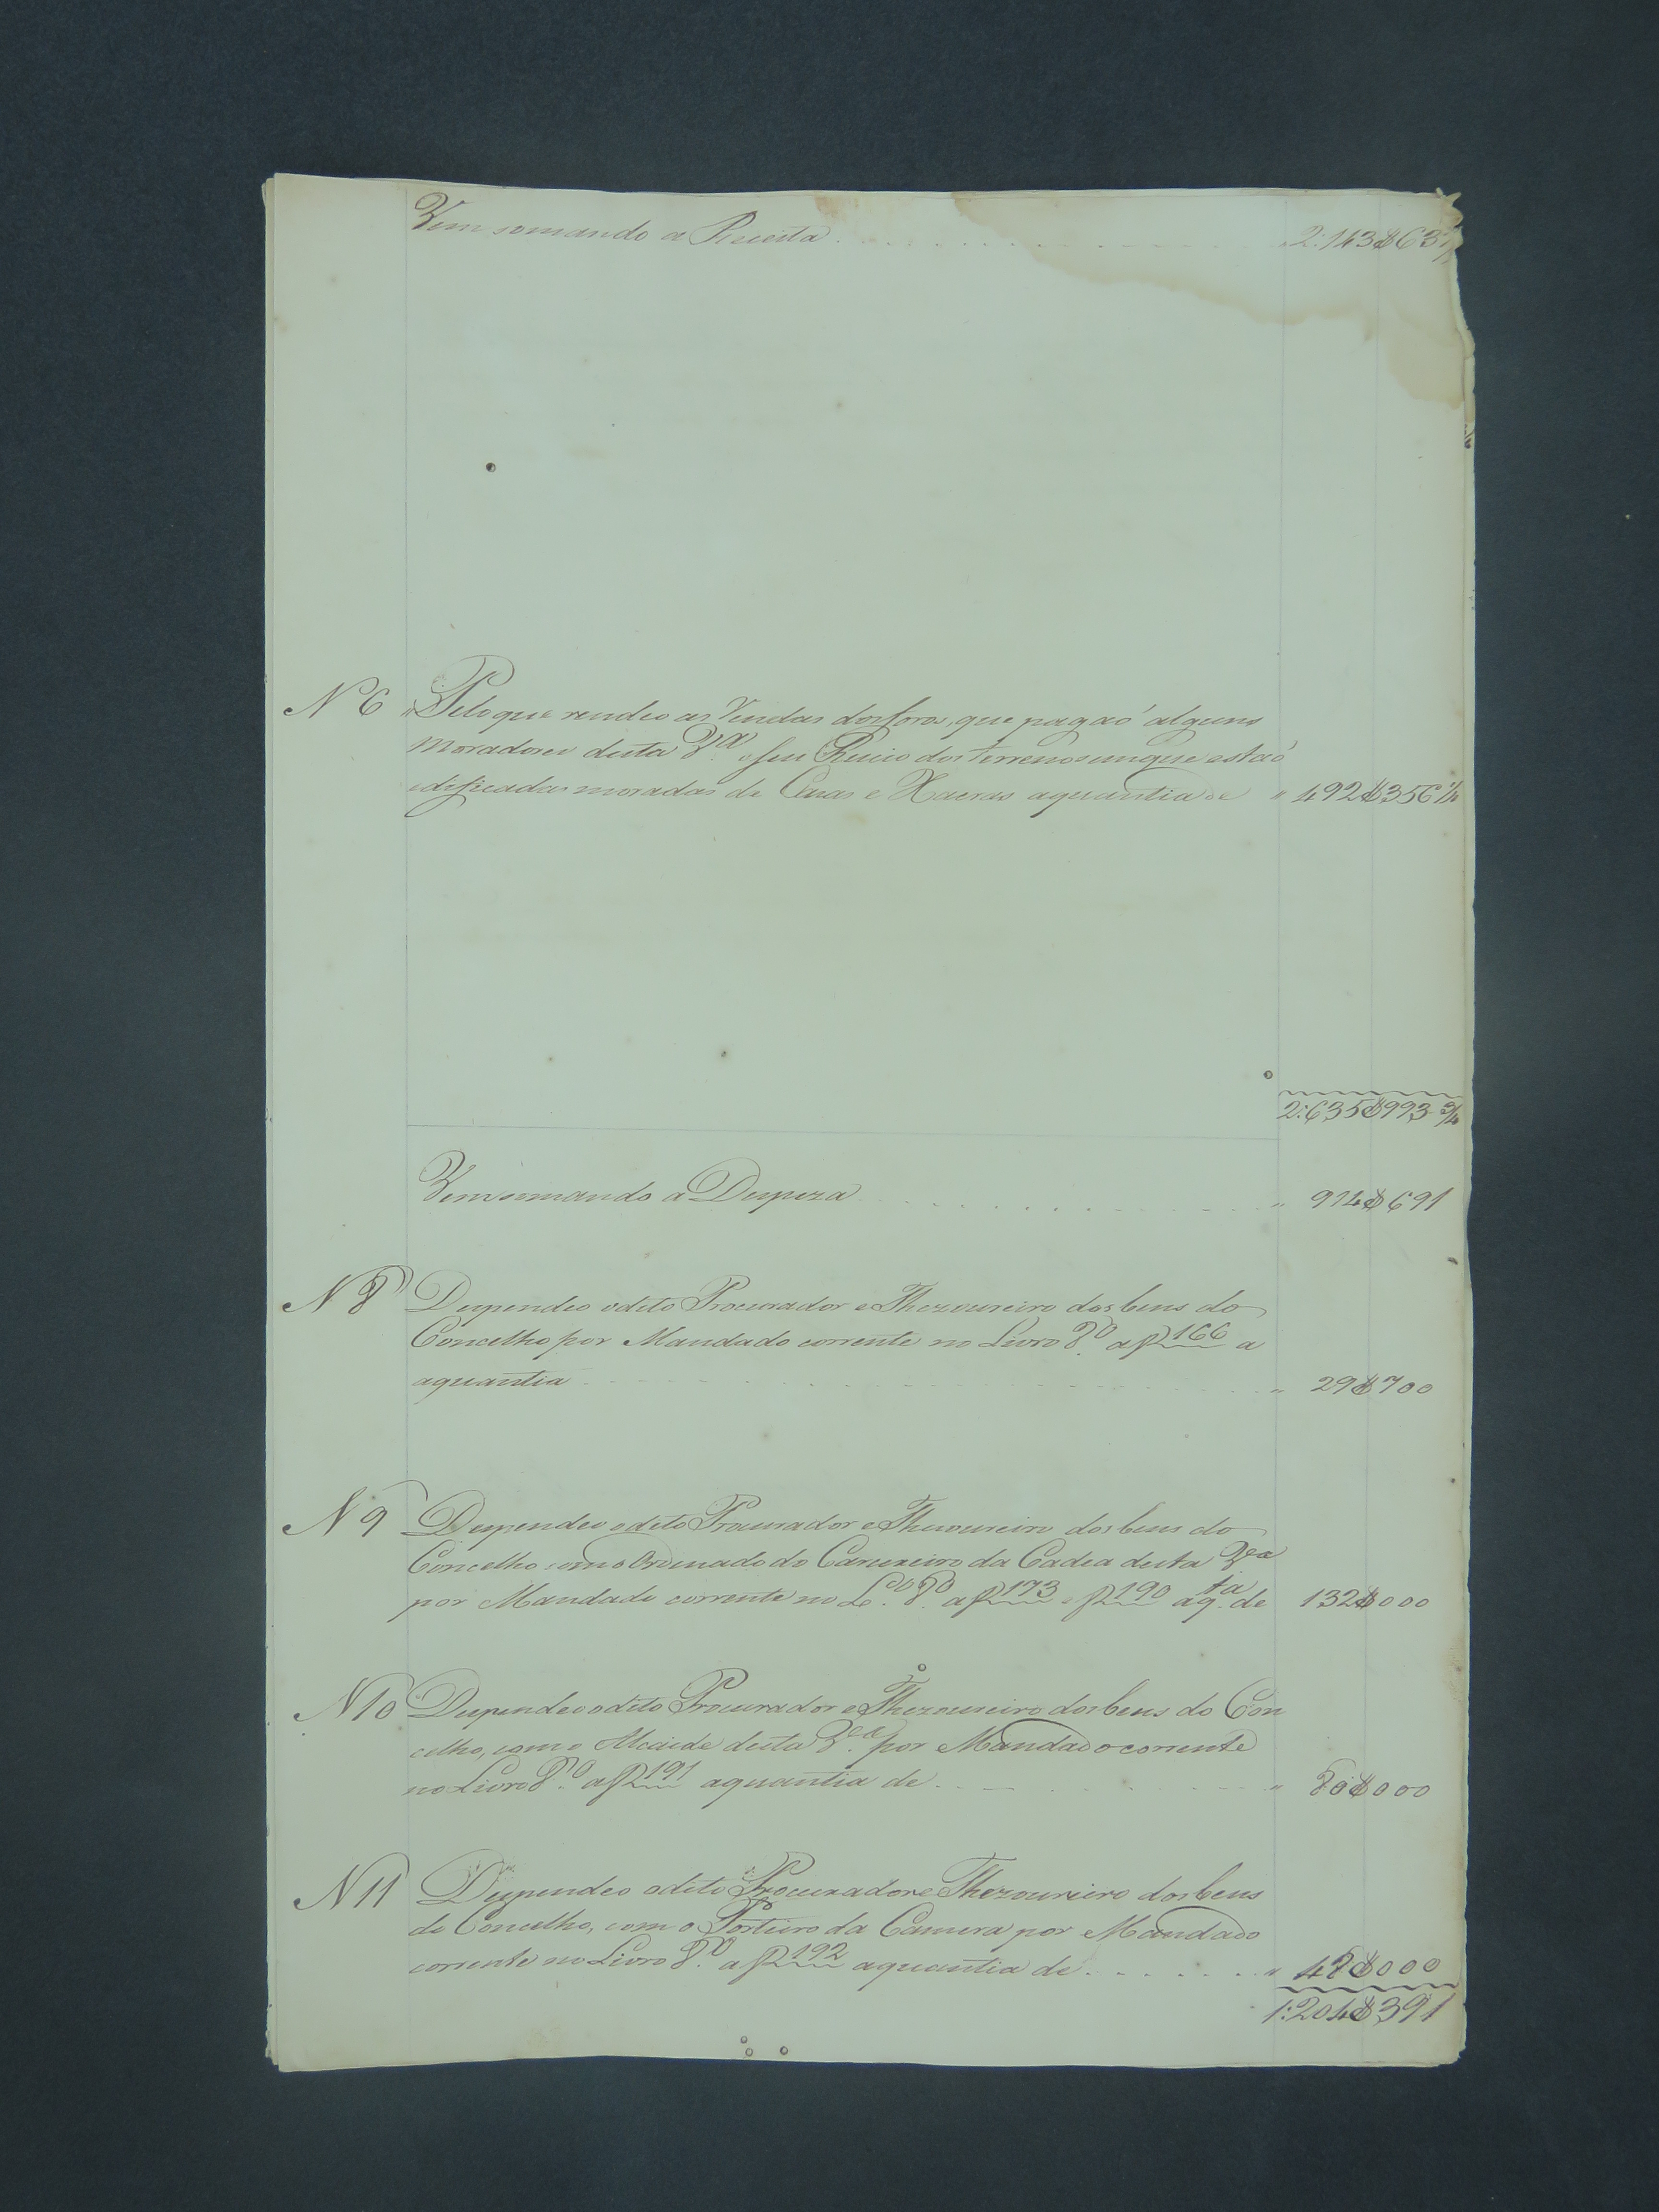 Vem somando a Receita . . . . . . . . . . 2:143$637
N 6 Pelo que rendeo as Vendas dos foros, que pagaõ alguns
Moradores desta Vª e seu Rucio dos terrenos em que estaõ
edificadas moradas de Cazas e Xacras aquantia de " 492$356 1/4
2:635$993 3/4
Vem somando a Despeza . . . . . . . . . . " 914$691
N 8 Despendeo odito Procurador e Thezoureiro dos bens do
Concelho por Mandado corrente no Livro 8º af 166 a
aquantia . . . . . . . . . . " 29$700
N 9 Despendeo odito Procurador e Thezoureiro dos bens do
Concelho com o Ordenado do Carcereiro da Cadea desta Vª
por Mandado corrente no Lº 8º af 173 e f 190 aq.ta de 132$000
N 10 Despendeo odito Procurador e Thezoureiro dos bens do Con
celho, com o Alcaide desta Vª por Mandado corrente
no Livro 8º af 191 aquantia de . . . . . " 80$000
N 11 Despendeo odito Procurador e Thezoureiro dos bens
do Concelho, com o Porteiro da Camera por Mandado
corrente no Livro 8º af 192 aquantia de . . . . . " 48$000
1:204$391